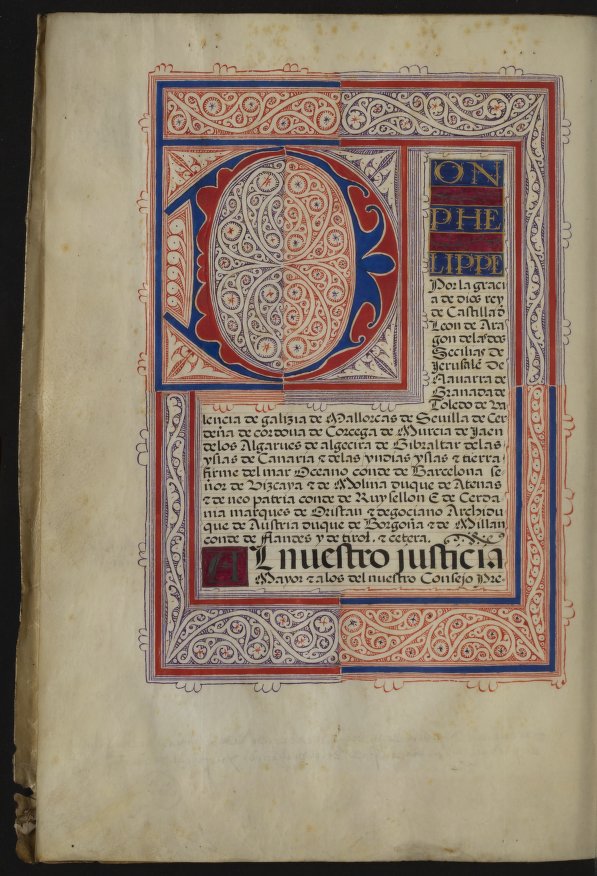 DON
PHE
LIPPE
Por la graci
a de dios rey
de Castilla d̃
Leon de Ara
gon de las dos
Secilias de
Jerusalẽ De
Nauarra de
Granada de
Toledo de va
lencia de galizia de Mallorcas de Seuilla de Cer
deña de cordoua de Corcega de Murcia de Jaen
de los Algarues de algecira de Gibraltar de las
yslas de Canaria & de las yndias yslas & tierra
firme del mar Oceano conde de Barcelona se
ñor de Vizcaya & de Molina duque de Atenas
& de neo patria conde de Ruysellon E de Cerda
nia marques de Oristan & de gociano Archidu
que de Austria duque de Borgoña & de Millan
conde de flandes y de tirol, & cetera.
AL nuestro justicia
Mayor & a los del nuestro Consejo Pre-